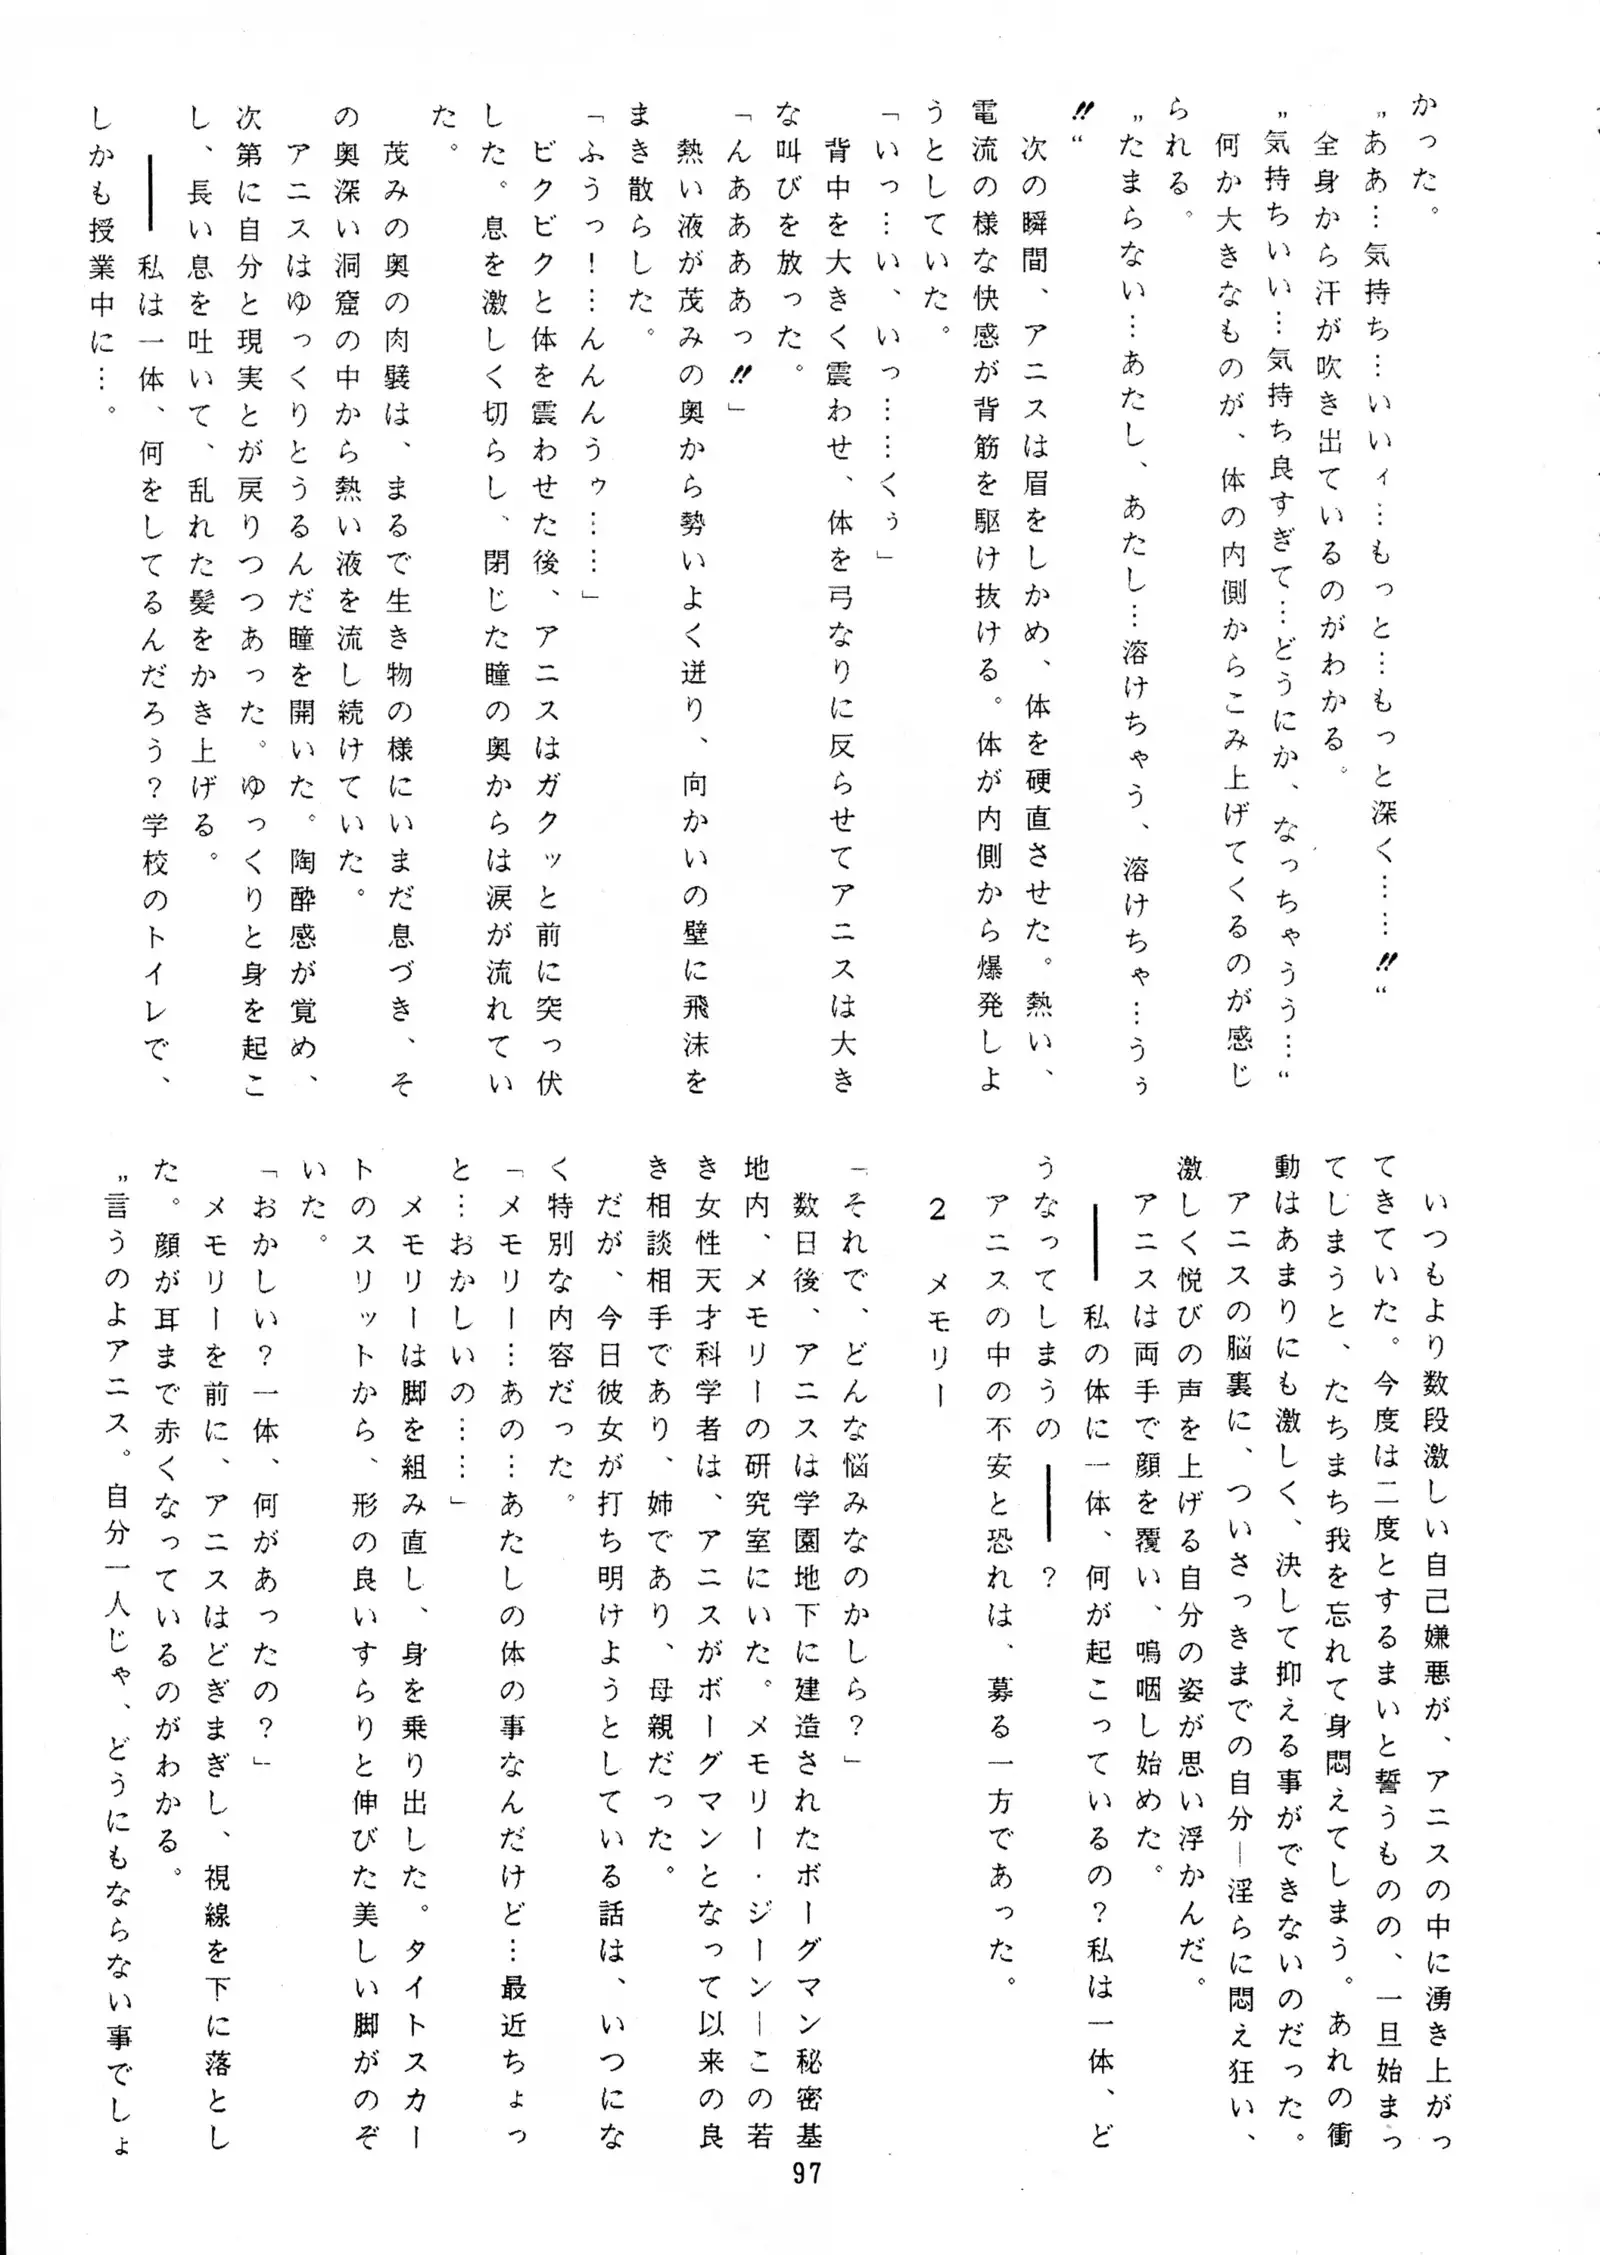 かった。
〝ああ…気持ち…いいィ…もっと…もっと深く……‼〟
全身から汗が吹き出ているのがわかる。
〝気持ちいい…気持ち良すぎて…どうにか、なっちゃうう…〟
何か大きなものが、体の内側からこみ上げてくるのが感じ
られる。
〝たまらない…あたし、あたし…溶けちゃう、溶けちゃ…うぅ
‼〟
次の瞬間、アニスは眉をしかめ、体を硬直させた。熱い、
電流の様な快感が背筋を駆け抜ける。体が内側から爆発しよ
うとしていた。
「いっ…い、いっ……くぅ」
背中を大きく震わせ、体を弓なりに反らせてアニスは大き
な叫びを放った。
「んあああっ‼」
熱い液が茂みの奥から勢いよく迸り、向かいの壁に飛沫を
まき散らした。
「ふうっ！…んんんうゥ……」
ビクビクと体を震わせた後、アニスはガクッと前に突っ伏
した。息を激しく切らし、閉じた瞳の奥からは涙が流れてい
た。
茂みの奥の肉襞は、まるで生き物の様にいまだ息づき、そ
の奥深い洞窟の中から熱い液を流し続けていた。
アニスはゆっくりとうるんだ瞳を開いた。陶酔感が覚め、
次第に自分と現実とが戻りつつあった。ゆっくりと身を起こ
し、長い息を吐いて、乱れた髪をかき上げる。
――私は一体、何をしてるんだろう？学校のトイレで、
しかも授業中に…。
いつもより数段激しい自己嫌悪が、アニスの中に湧き上がっ
てきていた。今度は二度とするまいと誓うものの、一旦始まっ
てしまうと、たちまち我を忘れて身悶えてしまう。あれの衝
動はあまりにも激しく、決して抑える事ができないのだった。
アニスの脳裏に、ついさっきまでの自分―淫らに悶え狂い、
激しく悦びの声を上げる自分の姿が思い浮かんだ。
アニスは両手で顔を覆い、嗚咽し始めた。
――私の体に一体、何が起こっているの？私は一体、ど
うなってしまうの――？
アニスの中の不安と恐れは、募る一方であった。
2　メモリー
「それで、どんな悩みなのかしら？」
数日後、アニスは学園地下に建造されたボーグマン秘密基
地内、メモリーの研究室にいた。メモリー・ジーン―この若
き女性天才科学者は、アニスがボーグマンとなって以来の良
き相談相手であり、姉であり、母親だった。
だが、今日彼女が打ち明けようとしている話は、いつにな
く特別な内容だった。
「メモリー…あの…あたしの体の事なんだけど…最近ちょっ
と…おかしいの……」
メモリーは脚を組み直し、身を乗り出した。タイトスカー
トのスリットから、形の良いすらりと伸びた美しい脚がのぞ
いた。
「おかしい？一体、何があったの？」
メモリーを前に、アニスはどぎまぎし、視線を下に落とし
た。顔が耳まで赤くなっているのがわかる。
〝言うのよアニス。自分一人じゃ、どうにもならない事でしょ
97